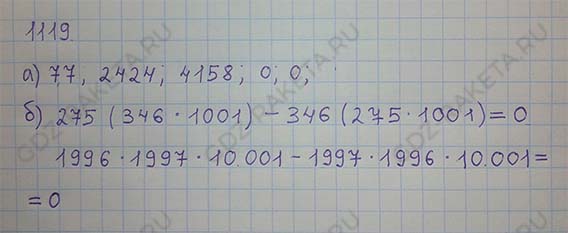 1119.
а) 77; 2424; 4158; 0; 0;
б) 275 (346 · 1001) − 346 (275 · 1001) = 0
1996 · 1997 · 10.001 − 1997 · 1996 · 10.001 =
= 0
GDZ-RAKETA.RU